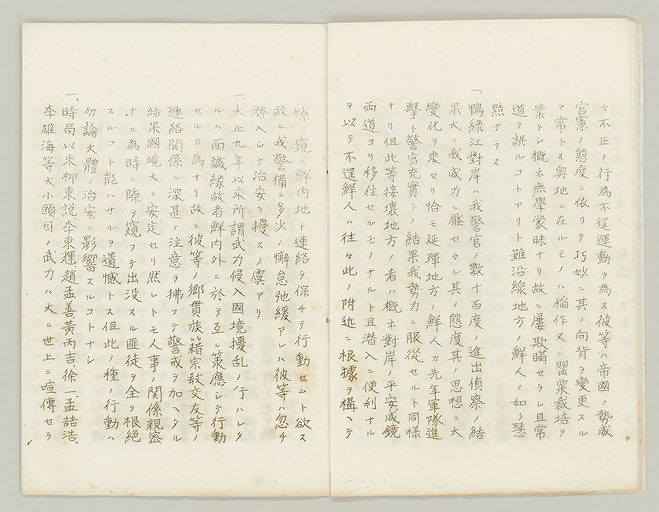 々不正ノ行為不逞運動ヲ為ス彼等ハ帝國ノ勢威
官憲ノ態度ニ依リテ巧妙ニ其ノ向背ヲ變更スル
ヲ常トス奥地ニ在ルモノハ稲作又ハ罌粟栽培ヲ
業トシ概ネ無學蒙昧ナリ故ニ屢欺瞞セラレ且常
道ヲ誤ルコトアリト雖沿線地方ノ鮮人ノ如ク
黠ナラス
一、鴨緑江對岸ハ我警官ノ數十百度ノ進出偵察ノ結
果大ニ我威力ニ壓セラレ其ノ態度其ノ思想ニ大
變化ヲ來セリ恰モ延琿地方ノ鮮人カ先年軍隊進
撃ト警官充實トノ結果我勢力ニ服從セルト同様
ナリ但此等接壤地方ノ者ハ概ネ對岸ノ平安咸鏡
両道ヨリ移住セルモノナルト且潜入ニ便利ナル
ヲ以テ不逞鮮人ハ往々此ノ附近ニ根據ヲ構ヘテ
隙ヲ窺ヒ鮮内地ト連絡ヲ保チテ行動セムト欲ス
故ニ我警備ニ多少ノ懈怠弛緩アレハ彼等ハ忽チ
潜入シテ治安ヲ擾スノ虞アリ
一、大正九年以來所謂武力侵入國境擾乱ノ行ハレタ
ルハ面識縁故者鮮内外ニ於テ互ニ策應シテ行動
セルカ為ナリ故ニ彼等ノ郷貫族籍宗教交友等ノ
連絡関係ニ深甚ノ注意ヲ拂フテ警戒ヲ加ヘタル
結果國境大ニ安定セリ然レトモ人事ノ関係親密
ナル為時ニ隙ヲ窺フテ出没スル匪徒ヲ全ク根絶
スルコト能ハサルヲ遺憾トス但此ノ種ノ行動ハ
勿論大體ノ治安ニ影響スルコトナシ
一、時局以來柳東説李東輝趙孟善黃丙吉徐一孟喆浩、
李雄海等大小頭目ノ武力ハ大ニ世上ニ喧傳セラ